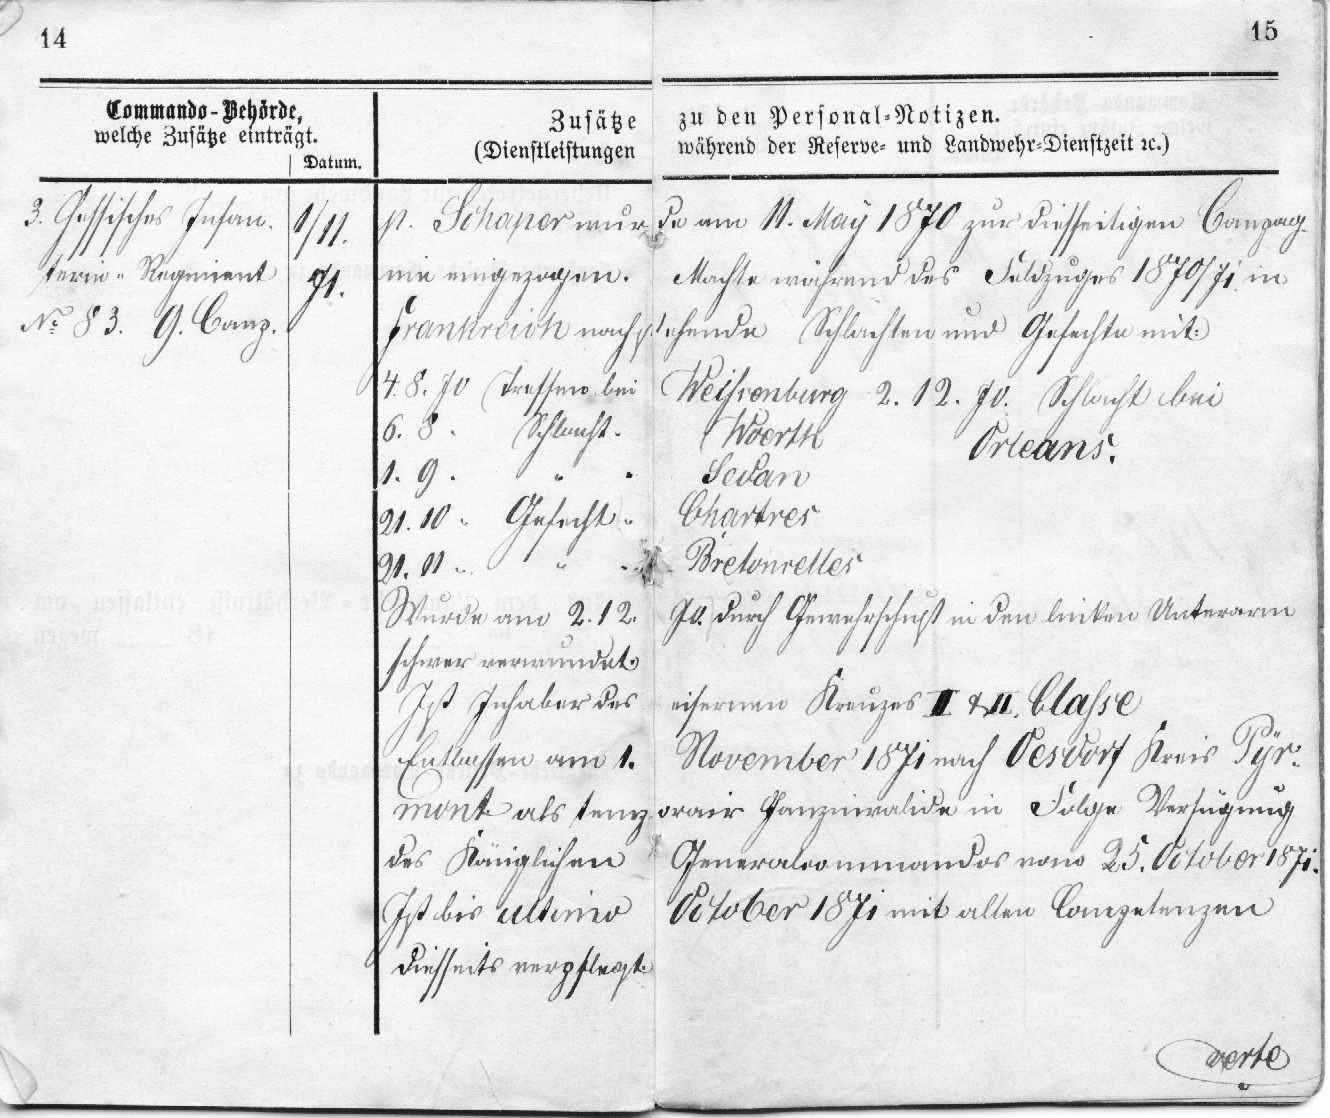 14
15
Commando-Behörde,
welche Zusätze einträgt.
Datum.
Zusätze zu den Personal-Notizen.
(Dienstleistungen während der Reserve- und Landwehr-Dienstzeit ꝛc.)
3. Hessisches Infan-
terie-Regiment
No 83. 9. Comp.
1/11.
71.
p. Schaper wurde am 11. May 1870 zur diesseitigen Compag
nie eingezogen. Machte während des Feldzuges 1870/71 in
Frankreich nachstehende Schlachten und Gefechte mit:
4. 8. 70 Treffen bei Weißenburg 2. 12. 70. Schlacht bei
6. 8. Schlacht " Woerth Orleans.
1. 9. " " Sedan
21. 10 " Gefecht " Chartres
21. 11 " " " Bretoncelles
Wurde am 2. 12. 70. durch Gewehrschuß in den linken Unterarm
schwer verwundet.
Ist Inhaber des eisernen Kreuzes II Classe
Entlassen am 1. November 1871 nach Oesdorf Kreis Pyr-
mont als temporair Ganzinvalide in Folge Verfügung
des Königlichen Generalcommandos vom 25. October 1871.
Ist bis ultimo October 1871 mit allen Competenzen
diesseits verpflegt.
verte